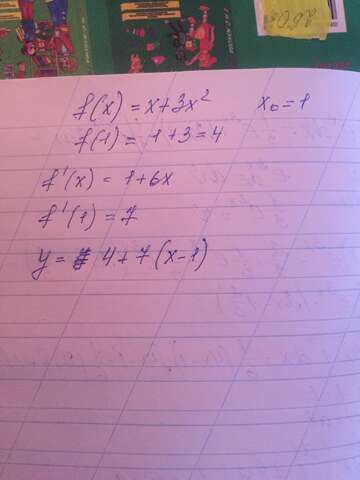 f(x) = x+3x² x₀=1
f(1) = 1+3=4
f'(x) = 1+6x
f'(1) = 7
y = 4+7(x-1)